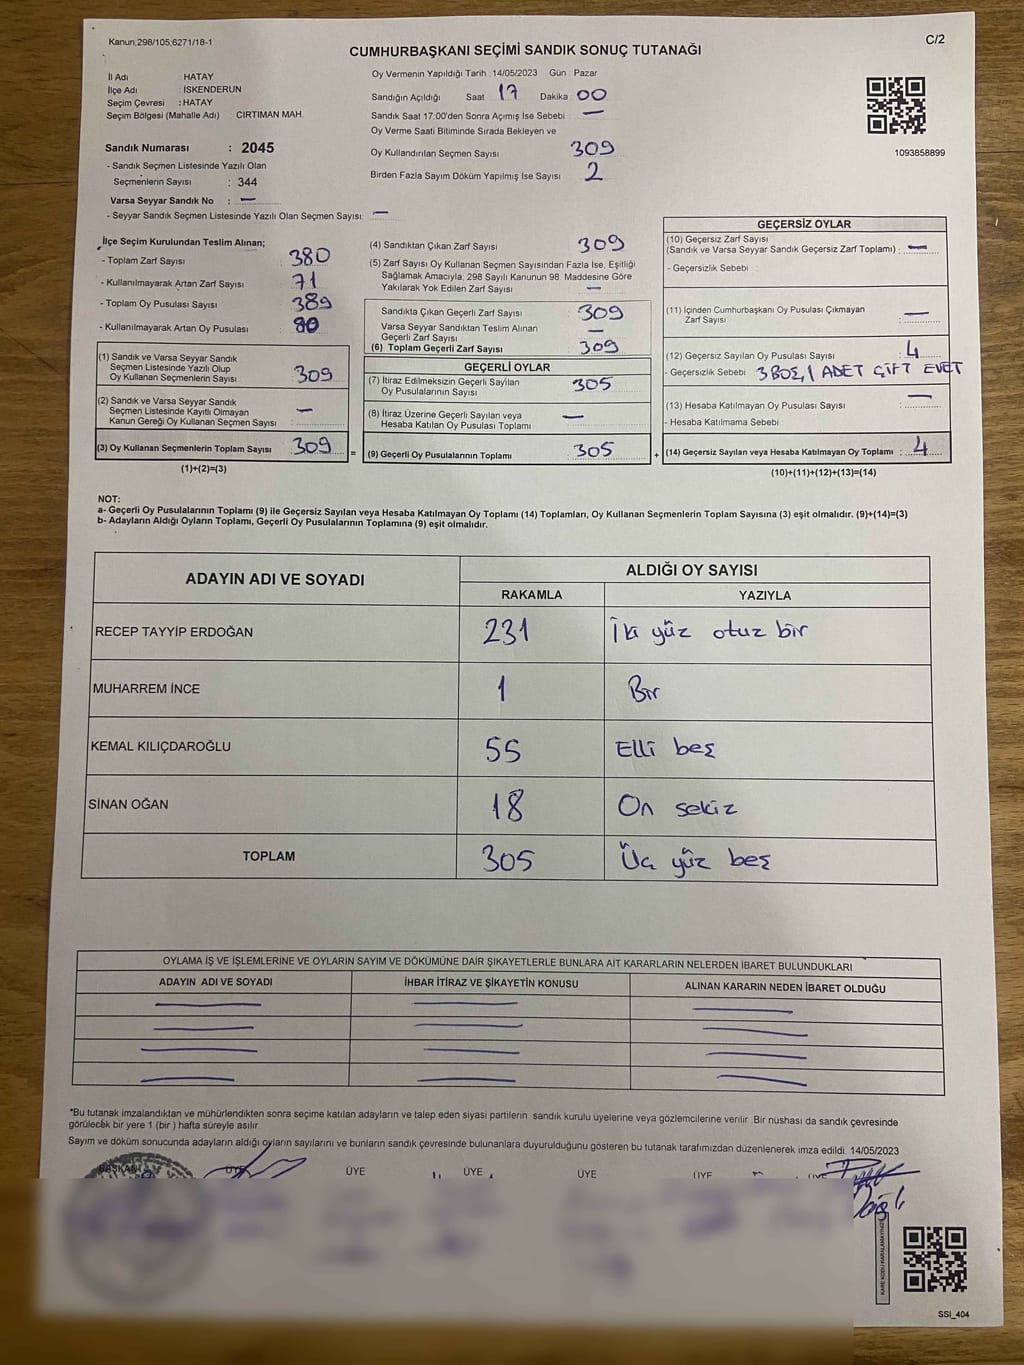 Kanun;298/105;6271/18-1
C/2
CUMHURBAŞKANI SEÇİMİ SANDIK SONUÇ TUTANAĞI
İl Adı HATAY
İlçe Adı İSKENDERUN
Seçim Çevresi : HATAY
Seçim Bölgesi (Mahalle Adı) CIRTIMAN MAH.
Sandık Numarası : 2045
- Sandık Seçmen Listesinde Yazılı Olan
Seçmenlerin Sayısı : 344
Varsa Seyyar Sandık No : —
- Seyyar Sandık Seçmen Listesinde Yazılı Olan Seçmen Sayısı: —
Oy Vermenin Yapıldığı Tarih : 14/05/2023 Gün : Pazar
Sandığın Açıldığı Saat 17 Dakika 00
Sandık Saat 17:00'den Sonra Açımış İse Sebebi —
Oy Verme Saati Bitiminde Sırada Bekleyen ve
Oy Kullandırılan Seçmen Sayısı 309
Birden Fazla Sayım Döküm Yapılmış İse Sayısı 2
1093858899
İlçe Seçim Kurulundan Teslim Alınan;
- Toplam Zarf Sayısı 380
- Kullanılmayarak Artan Zarf Sayısı 71
- Toplam Oy Pusulası Sayısı 389
- Kullanılmayarak Artan Oy Pusulası 80
(1) Sandık ve Varsa Seyyar Sandık
Seçmen Listesinde Yazılı Olup
Oy Kullanan Seçmenlerin Sayısı 309
(2) Sandık ve Varsa Seyyar Sandık
Seçmen Listesinde Kayıtlı Olmayan
Kanun Gereği Oy Kullanan Seçmen Sayısı —
(3) Oy Kullanan Seçmenlerin Toplam Sayısı 309
(1)+(2)=(3)
(4) Sandıktan Çıkan Zarf Sayısı 309
(5) Zarf Sayısı Oy Kullanan Seçmen Sayısından Fazla İse, Eşitliği
Sağlamak Amacıyla, 298 Sayılı Kanunun 98. Maddesine Göre
Yakılarak Yok Edilen Zarf Sayısı —
Sandıkta Çıkan Geçerli Zarf Sayısı 309
Varsa Seyyar Sandıktan Teslim Alınan
Geçerli Zarf Sayısı —
(6) Toplam Geçerli Zarf Sayısı 309
GEÇERLİ OYLAR
(7) İtiraz Edilmeksizin Geçerli Sayılan
Oy Pusulalarının Sayısı 305
(8) İtiraz Üzerine Geçerli Sayılan veya
Hesaba Katılan Oy Pusulası Toplamı —
= (9) Geçerli Oy Pusulalarının Toplamı 305
GEÇERSİZ OYLAR
(10) Geçersiz Zarf Sayısı
(Sandık ve Varsa Seyyar Sandık Geçersiz Zarf Toplamı) : —
- Geçersizlik Sebebi :
(11) İçinden Cumhurbaşkanı Oy Pusulası Çıkmayan
Zarf Sayısı : —
(12) Geçersiz Sayılan Oy Pusulası Sayısı : 4
- Geçersizlik Sebebi : 3 BOŞ, 1 ADET ÇİFT EVET
(13) Hesaba Katılmayan Oy Pusulası Sayısı : —
- Hesaba Katılmama Sebebi :
+ (14) Geçersiz Sayılan veya Hesaba Katılmayan Oy Toplamı : 4
(10)+(11)+(12)+(13)=(14)
NOT:
a- Geçerli Oy Pusulalarının Toplamı (9) ile Geçersiz Sayılan veya Hesaba Katılmayan Oy Toplamı (14) Toplamları, Oy Kullanan Seçmenlerin Toplam Sayısına (3) eşit olmalıdır. (9)+(14)=(3)
b- Adayların Aldığı Oyların Toplamı, Geçerli Oy Pusulalarının Toplamına (9) eşit olmalıdır.
ADAYIN ADI VE SOYADI ALDIĞI OY SAYISI
RAKAMLA YAZIYLA
RECEP TAYYİP ERDOĞAN 231 İki yüz otuz bir
MUHARREM İNCE 1 Bir
KEMAL KILIÇDAROĞLU 55 Elli beş
SİNAN OĞAN 18 On sekiz
TOPLAM 305 Üç yüz beş
OYLAMA İŞ VE İŞLEMLERİNE VE OYLARIN SAYIM VE DÖKÜMÜNE DAİR ŞİKAYETLERLE BUNLARA AİT KARARLARIN NELERDEN İBARET BULUNDUKLARI
ADAYIN ADI VE SOYADI İHBAR İTİRAZ VE ŞİKAYETİN KONUSU ALINAN KARARIN NEDEN İBARET OLDUĞU
*Bu tutanak imzalandıktan ve mühürlendikten sonra seçime katılan adayların ve talep eden siyasi partilerin sandık kurulu üyelerine veya gözlemcilerine verilir. Bir nüshası da sandık çevresinde
görülecek bir yere 1 (bir ) hafta süreyle asılır.
Sayım ve döküm sonucunda adayların aldığı oyların sayılarını ve bunların sandık çevresinde bulunanlara duyurulduğunu gösteren bu tutanak tarafımızdan düzenlenerek imza edildi. 14/05/2023
BAŞKAN ÜYE ÜYE ÜYE ÜYE ÜYE ÜYE
KARE KODU KARALAMAYINIZ
SSI_404